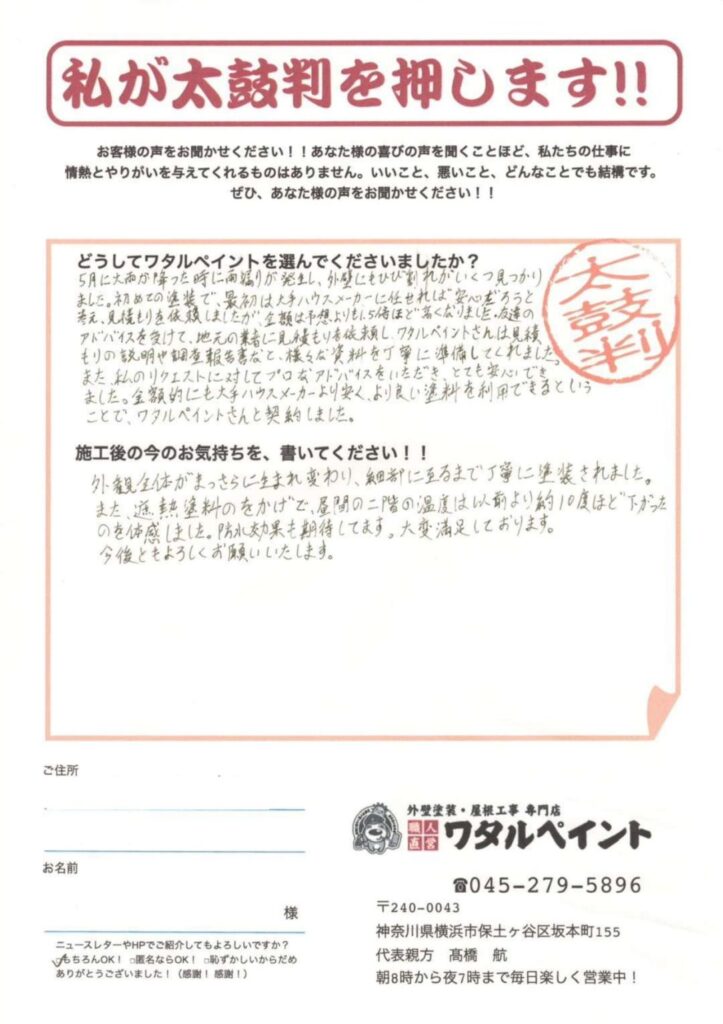 私が太鼓判を押します!!
お客様の声をお聞かせください！！あなた様の喜びの声を聞くことほど、私たちの仕事に
情熱とやりがいを与えてくれるものはありません。いいこと、悪いこと、どんなことでも結構です。
ぜひ、あなた様の声をお聞かせください！！
どうしてワタルペイントを選んでくださいましたか？
5月に大雨が降った時に雨漏りが発生し、外壁にもひび割れがいくつ見つかり
ました。初めての塗装で、最初は大手ハウスメーカーに任せれば安心だろうと
考え、見積もりを依頼しましたが、金額は予想よりも1.5倍ほど高くなりました。友達の
アドバイスを受けて、地元の業者に見積もりを依頼し、ワタルペイントさんは見積
もりの説明や調査報告書など、様々な資料を丁寧に準備してくれました。
また、私のリクエストに対してプロなアドバイスをいただき、とても安心でき
ました。金額的にも大手ハウスメーカーより安く、より良い塗料を利用できるという
ことで、ワタルペイントさんと契約しました。
太鼓判
施工後の今のお気持ちを、書いてください！！
外観全体がまっさらに生まれ変わり、細部に至るまで丁寧に塗装されました。
また、遮熱塗料のをかげで、昼間の二階の温度は以前より約10度ほど下がった
のを体感しました。防水効果も期待してます。大変満足しております。
今後ともよろしくお願いいたします。
ご住所
お名前
様
ニュースレターやHPでご紹介してもよろしいですか？
☑もちろんOK！ □匿名ならOK！ □恥ずかしいからだめ
ありがとうございました！（感謝！感謝！）
外壁塗装・屋根工事 専門店
職人直営 ワタルペイント
☎045-279-5896
〒240-0043
神奈川県横浜市保土ヶ谷区坂本町155
代表親方 髙橋 航
朝8時から夜7時まで毎日楽しく営業中！